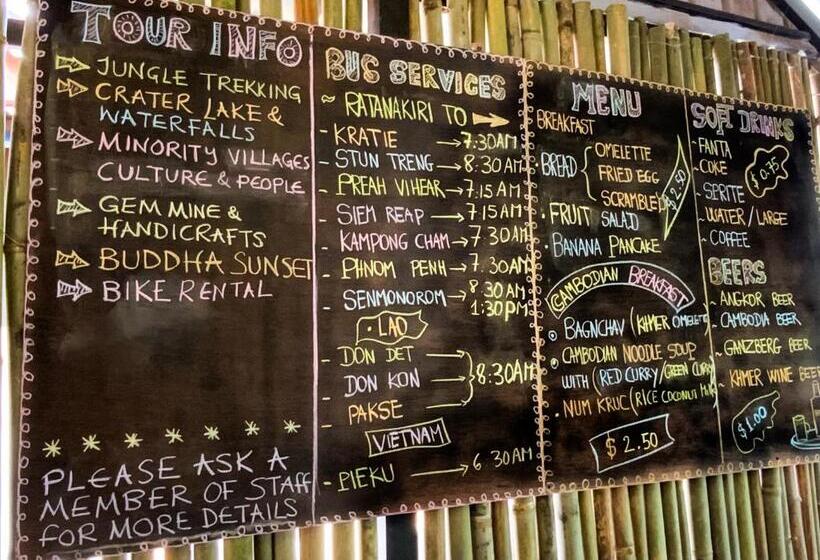 TOUR INFO
JUNGLE TREKKING
CRATER LAKE &
WATERFALLS
MINORITY VILLAGES
CULTURE & PEOPLE
GEM MINE &
HANDICRAFTS
BUDDHA SUNSET
BIKE RENTAL
PLEASE ASK A
MEMBER OF STAFF
FOR MORE DETAILS
BUS SERVICES
~ RATANAKIRI TO →
- KRATIE → 7:30AM
- STUN TRENG → 8:30AM
- PREAH VIHEAR → 7:15AM
- SIEM REAP → 7:15AM
- KAMPONG CHAM → 7:30AM
- PHNOM PENH → 7:30AM
- SENMONOROM → 8:30AM
1:30pm
• LAO
- DON DET →
- DON KON → 8:30AM
- PAKSE →
VIETNAM
- PIEKU → 6:30AM
MENU
BREAKFAST
• BREAD { OMELETTE
FRIED EGG
SCRAMBLE
$2.50
• FRUIT SALAD
• BANANA PANCAKE
CAMBODIAN BREAKFAST
• BAGNCHAV (KHMER OMELETTE
• CAMBODIAN NOODLE SOUP
WITH (RED CURRY/GREEN CURRY
• NUM KRUC (RICE COCONUT
$2.50
SOFT DRINKS
- FANTA
- COKE
$0.75
- SPRITE
- WATER/LARGE
- COFFEE
BEERS
- ANGKOR BEER
- CAMBODIA BEER
- GANZBERG BEER
- KHMER WINE BEER
$1.00